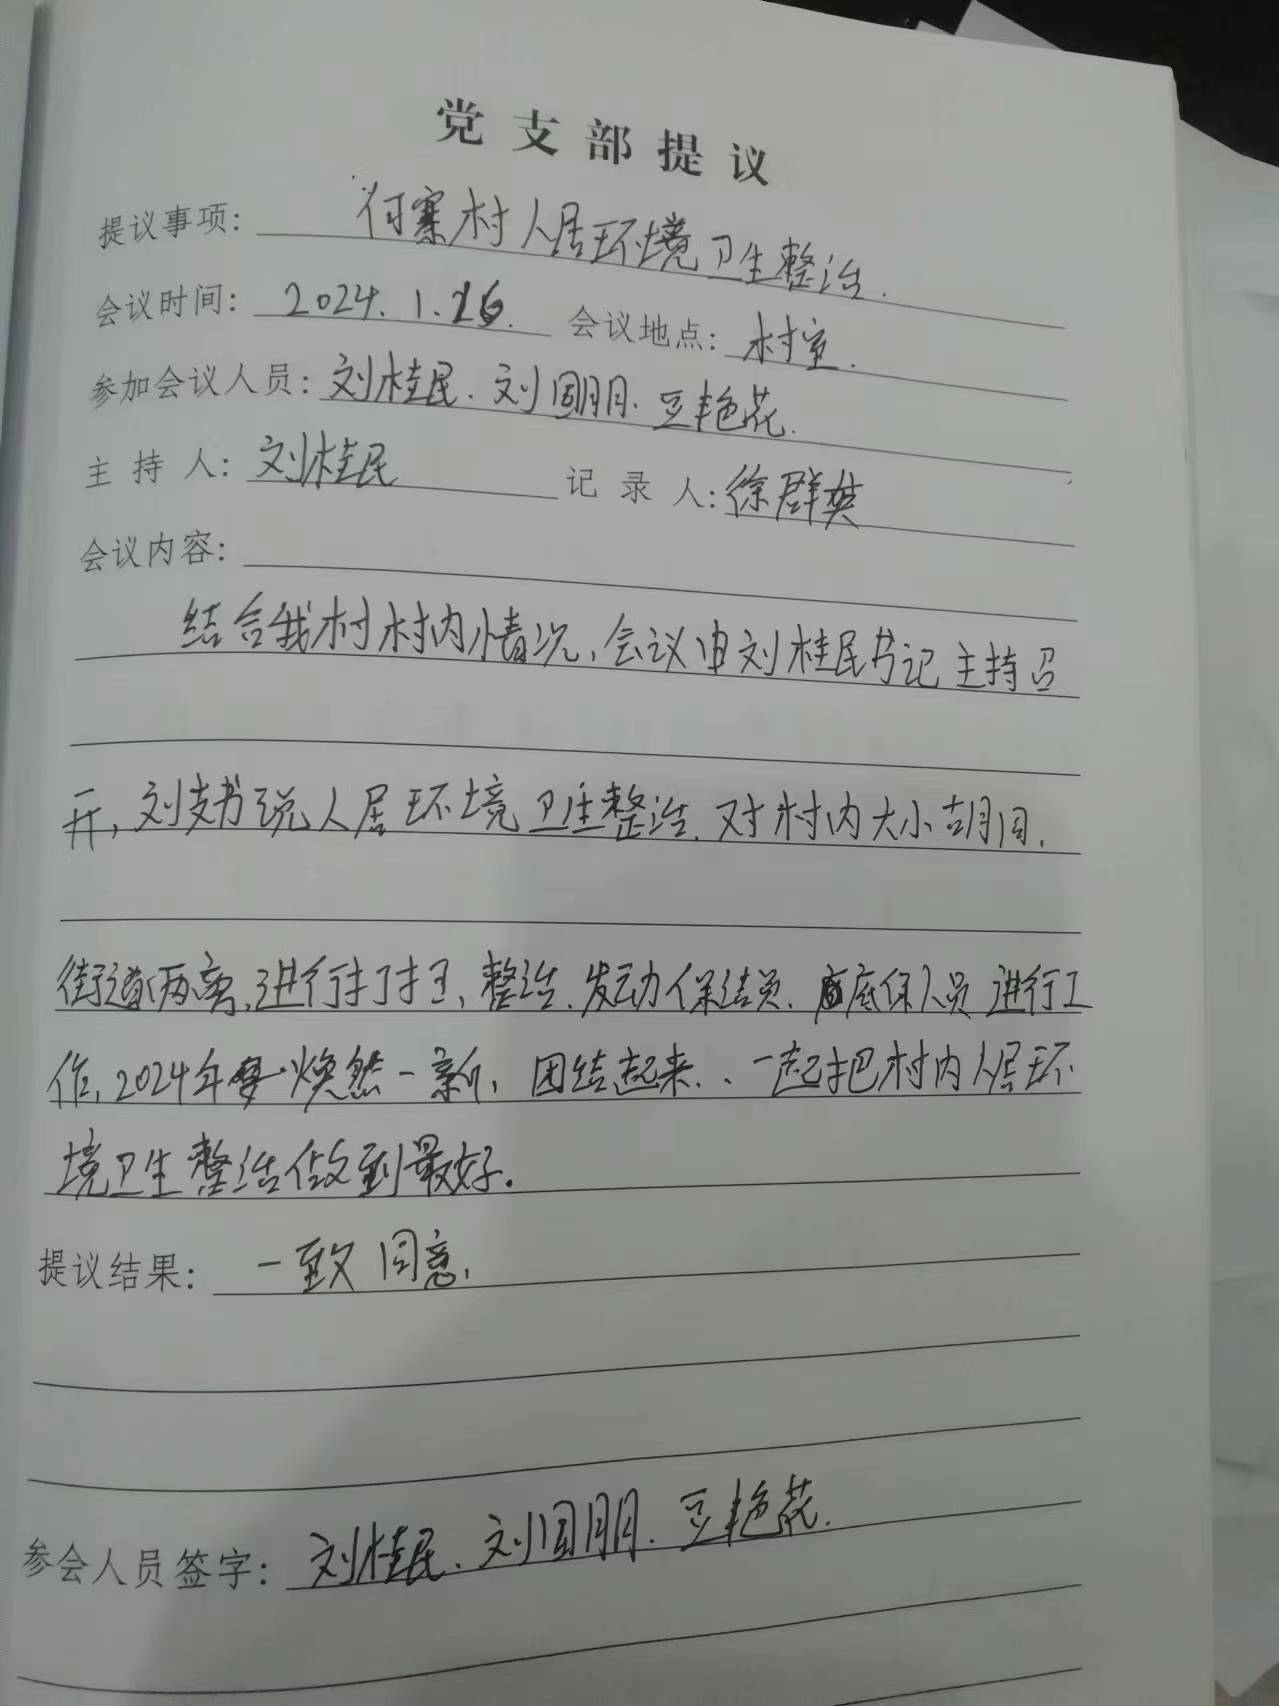 党支部提议
提议事项: 何寨村人居环境卫生整治.
会议时间: 2024.1.26. 会议地点: 村室.
参加会议人员: 刘桂民.刘国朋.豆艳花.
主持人: 刘桂民 记录人: 徐群英
会议内容:
结合我村村内情况,会议由刘桂民书记主持召
开,刘支书说人居环境卫生整治.对村内大小胡同.
街道两旁,进行打扫、整治.发动保洁员.底保人员进行工
作,2024年要焕然一新,团结起来..一起把村内人居环
境卫生整治做到最好.
提议结果: 一致同意,
参会人员签字: 刘桂民.刘国朋.豆艳花.